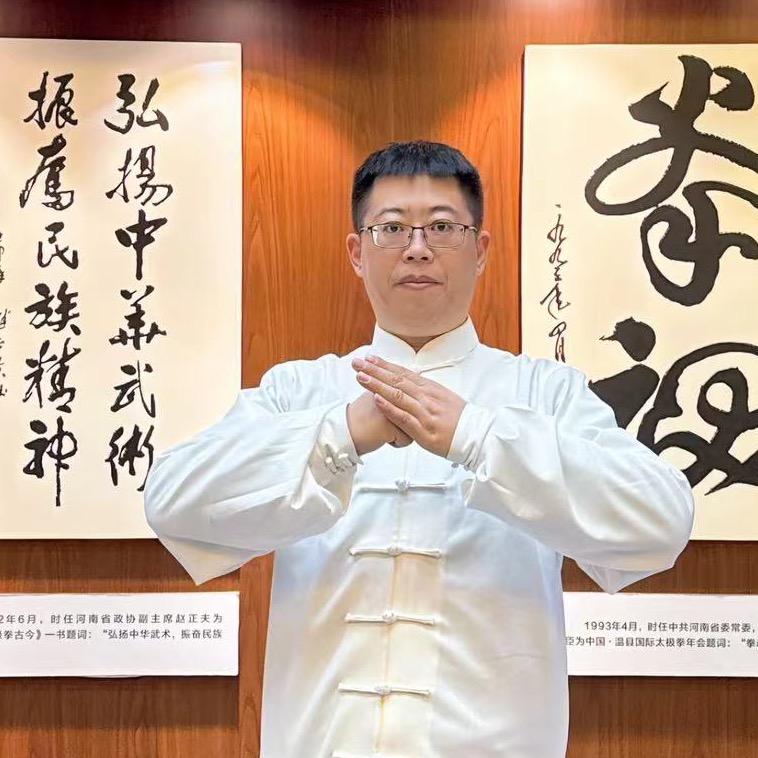 弘揚中华武術
振奮民族精神
2年6月，时任河南省政协副主席赵正夫为
拳古今》一书题词：“弘扬中华武术，振奋民族
拳
一九九三年四月
1993年4月，时任中共河南省委常委，
臣为中国·温县国际太极拳年会题词：“拳